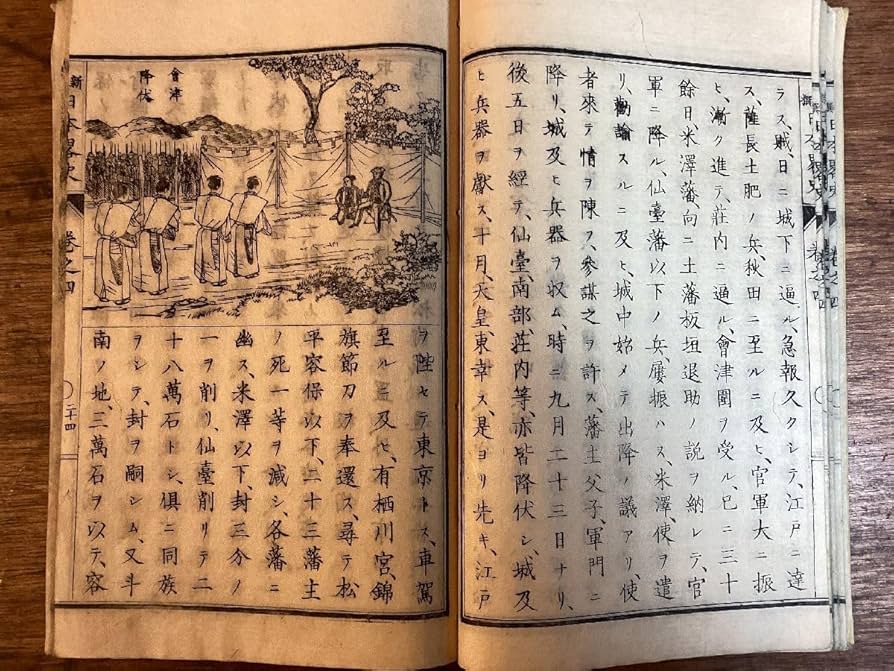 ラス、賊、日ニ城下ニ逼ル、急報久クシテ、江戸ニ達
ス、薩長土肥ノ兵、秋田ニ至ルニ及ヒ、官軍大ニ振
ヒ、漸ク進テ、荘内ニ逼ル、會津圍ヲ受ル、已ニ三十
餘日米澤藩、向ニ土藩板垣退助ノ説ヲ納レテ、官
軍ニ降ル、仙臺藩以下ノ兵、屢振ハス、米澤、使ヲ遣
リ、勸諭スルニ及ヒ、城中始メテ出降ノ議アリ、使
者來テ情ヲ陳フ、參謀之ヲ許ス、藩主父子、軍門ニ
降リ、城及ヒ兵器ヲ収ム、時ニ九月二十三日ナリ、
後五日ヲ經テ、仙臺、南部、荘内等、亦皆降伏シ、城及
ヒ兵器ヲ獻ス、十月、天皇、東幸ス、是ヨリ先キ、江戸
會津
降伏
ヲ陞セテ東京トス、車駕
至ルニ及ヒ、有栖川宮、錦
旗節刀ヲ奉還ス、尋テ松
平容保以下、二十三藩主
ノ死一等ヲ減シ、各藩ニ
幽ス、米澤以下、封三分ノ
一ヲ削リ、仙臺削リテ二
十八萬石トシ、倶ニ同族
ヲシテ、封ヲ嗣シム、又斗
南ノ地、三萬石ヲ以テ、容
新 日本畧史 卷之四 二十四